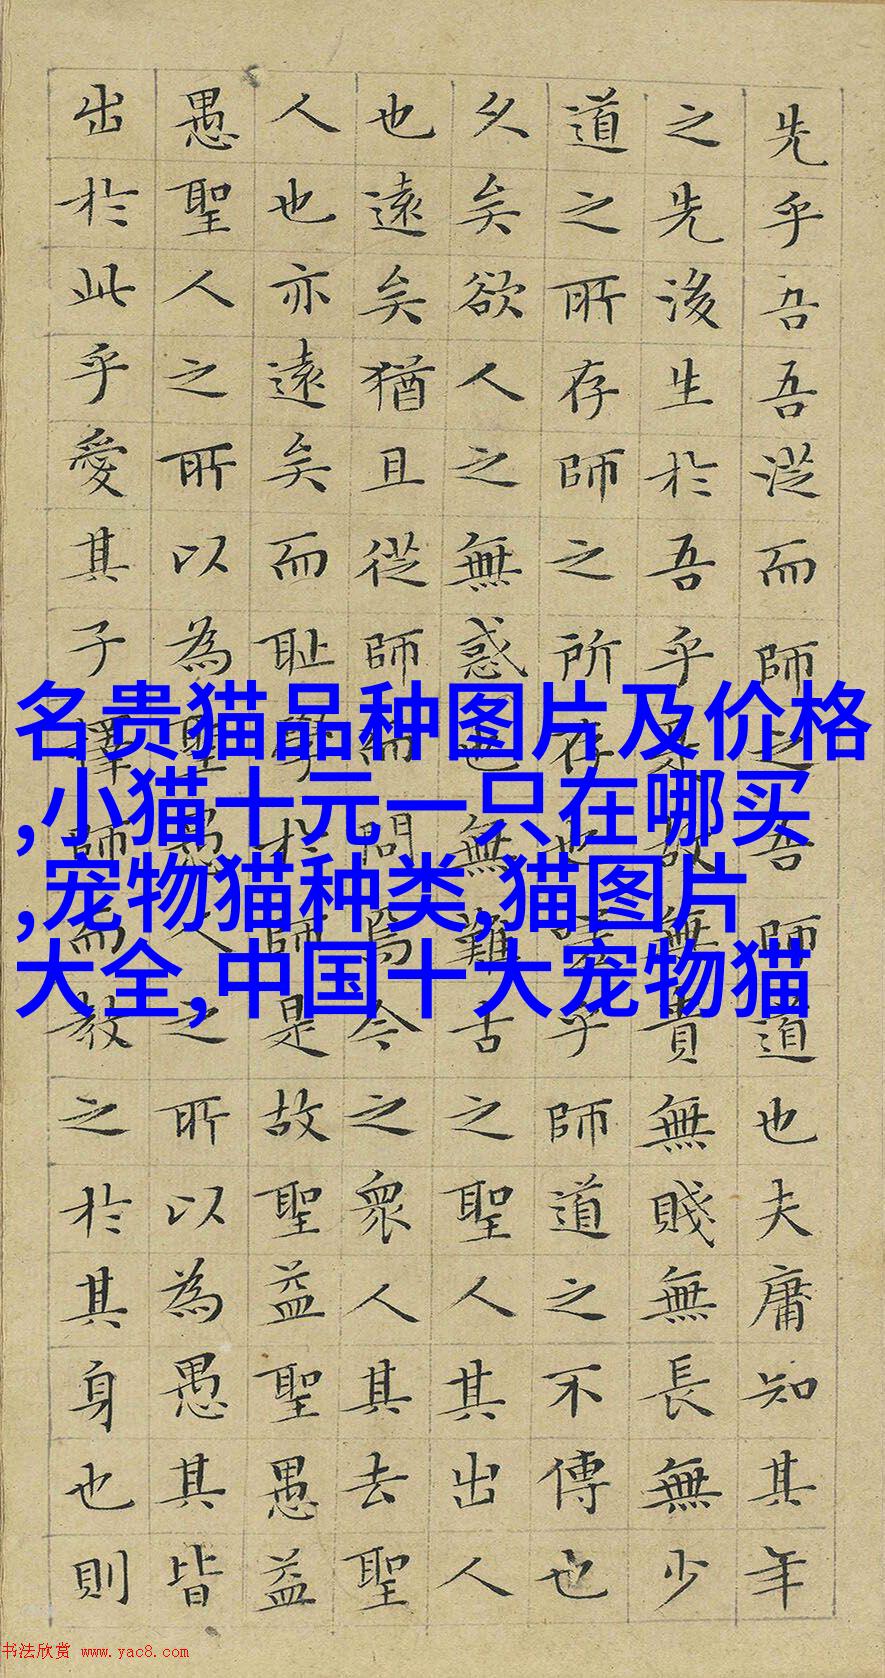 先乎吾吾從而師之吾師道也夫庸知其年
之先後生於吾乎是故無貴無賤無長無少
道之所存師之所存也嗟乎師道之不傳也
久矣欲人之無惑也無難古之聖人其出人
也遠矣猶且從師而問焉今之衆人其去聖
人也亦遠矣而耻學於師是故聖益聖愚益
愚聖人之所以為聖愚人之所以為愚其皆
出於此乎愛其子擇師而教之於其身也則
名贵猫品种图片及价格
,小猫十元一只在哪买
,宠物猫种类,猫图片
大全,中国十大宠物猫
书法欣赏 www.yac8.com